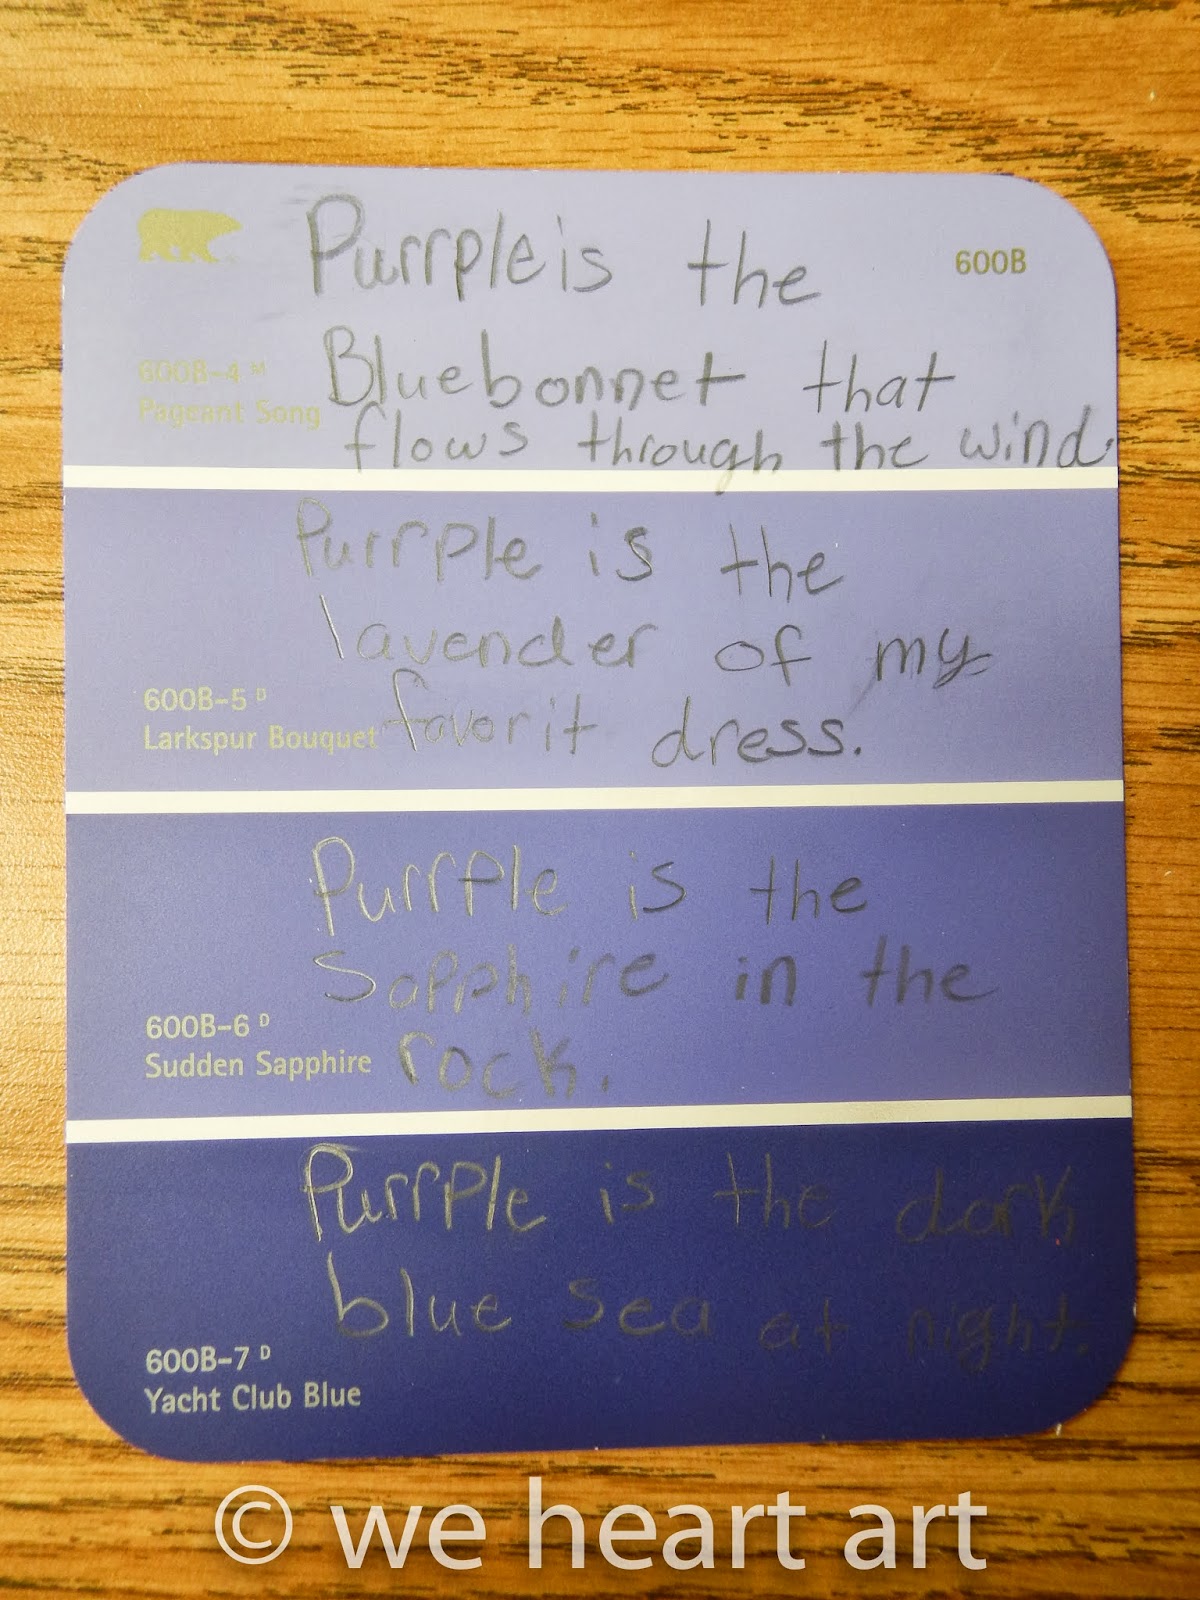 Purrple is the
600B
Bluebonnet that
600B-4 M
Pageant Song
flows through the wind.
Purrple is the
lavender of my
600B-5 D
Larkspur Bouquet
favorit dress.
Purrple is the
Sapphire in the
600B-6 D
Sudden Sapphire
rock.
Purrple is the dark
blue sea at night.
600B-7 D
Yacht Club Blue
© we heart art